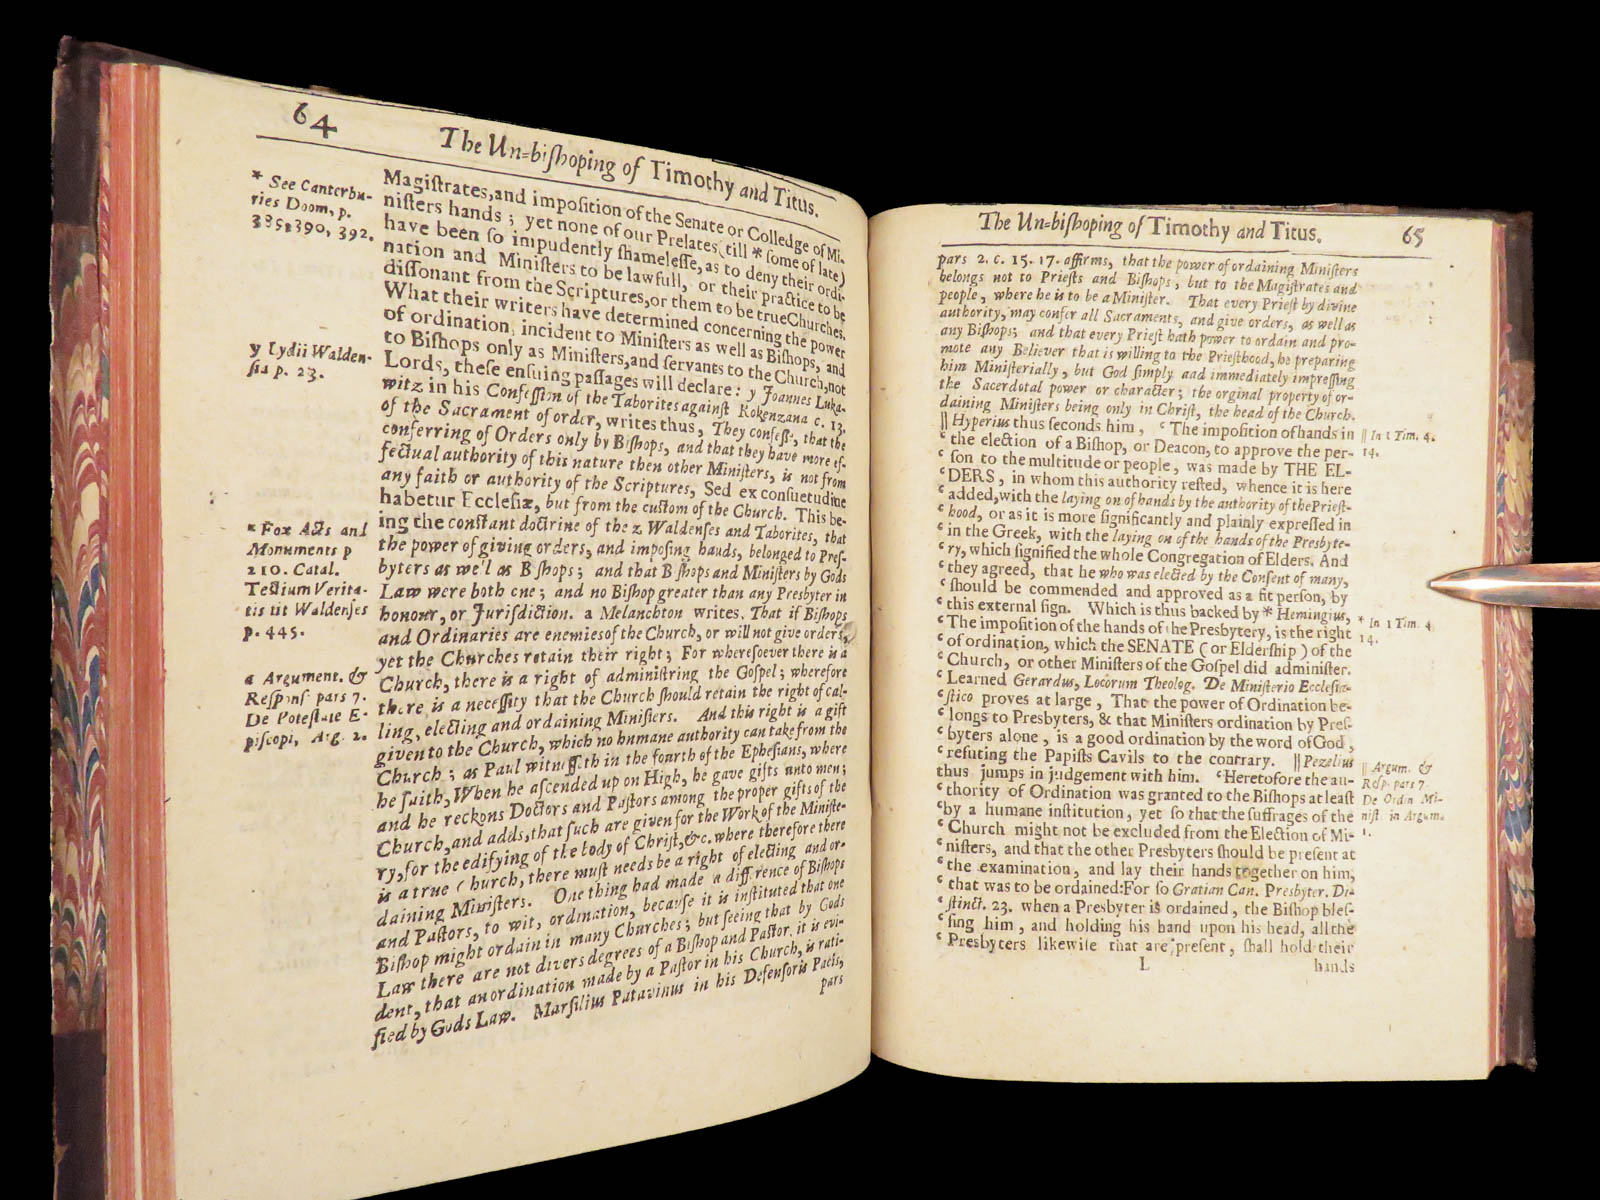 64
The Un=biſhoping of Timothy and Titus.
* See Canterbu-
ries Doom, p.
385, 390, 392.
y Lydii Walden-
ſia p. 23.
* Fox Acts and
Monuments p
210. Catal.
Teſtium Verita-
tis tit Waldenſes
p. 445.
a Argument. &
Reſponſ pars 7.
De Poteſtate E-
piſcopi, Arg. 2.
Magiſtrates, and impoſition of the Senate or Colledge of Mi-
niſters hands; yet none of our Prelates (till * ſome of late)
have been ſo impudently ſhameleſſe, as to deny their ordi-
nation and Miniſters to be lawfull, or their practice to be
diſſonant from the Scriptures, or them to be true Churches.
What their writers have determined concerning the power
of ordination, incident to Miniſters as well as Biſhops, and
to Biſhops only as Miniſters, and ſervants to the Church, not
Lords, theſe enſuing paſſages will declare: y Joannes Luka-
witz in his Confeſſion of the Taborites againſt Rokenzana c. 13.
of the Sacrament of order, writes thus, They confeſſe, that the
conferring of Orders only by Biſhops, and that they have more ef-
fectual authority of this nature then other Miniſters, is not from
any faith or authority of the Scriptures, Sed ex conſuetudine
habetur Eccleſiæ, but from the cuſtom of the Church. This be-
ing the conſtant doctrine of the z Waldenſes and Taborites, that
the power of giving orders, and impoſing hauds, belonged to Preſ-
byters as we'l as B ſhops; and that B ſhops and Miniſters by Gods
Law were both one; and no Biſhop greater than any Presbyter in
honour, or Juriſdiction. a Melancton writes. That if Biſhops
and Ordinaries are enemies of the Church, or will not give orders,
yet the Churches retain their right; For whereſoever there is a
Church, there is a right of adminiſtring the Goſpel; wherefore
there is a neceſſity that the Church ſhould retain the right of cal-
ling, electing and ordaining Miniſters. And this right is a gift
given to the Church, which no humane authority can take from the
Church; as Paul witneſſeth in the fourth of the Epheſians, where
he ſaith, When he aſcended up on High, he gave gifts unto men;
and he reckons Doctors and Paſtors among the proper gifts of the
Church, and adds, that ſuch are given for the Work of the Miniſte-
ry, for the edifying of the body of Chriſt, &c. where therefore there
is a true Church, there muſt needs be a right of electing and or-
daining Miniſters. One thing had made a difference of Biſhops
and Paſtors, to wit, ordination, becauſe it is inſtituted that one
Biſhop might ordain in many Churches; but ſeeing that by Gods
Law there are not divers degrees of a Biſhop and Paſtor, it is evi-
dent, that an ordination made by a Paſtor in his Church, is rati-
fied by Gods Law. Marſilius Patavinus in his Defenſoris Pacis,
pars
The Un=biſhoping of Timothy and Titus.
65
pars 2. c. 15. 17. affirms, that the power of ordaining Miniſters
belongs not to Prieſts and Biſhops, but to the Magiſtrates and
people, where he is to be a Miniſter. That every Prieſt by divine
authority, may confer all Sacraments, and give orders, as well as
any Biſhops; and that every Prieſt hath power to ordain and pro-
mote any Believer that is willing to the Prieſthood, he preparing
him Miniſterially, but God ſimply and immediately impreſſing
the Sacerdotal power or character; the orginal property of or-
daining Miniſters being only in Chriſt, the head of the Church.
|| Hyperius thus ſeconds him, ‘ The impoſition of hands in
‘ the election of a Biſhop, or Deacon, to approve the per-
‘ ſon to the multitude or people, was made by THE EL-
‘ DERS, in whom this authority reſted, whence it is here
‘ added, with the laying on of hands by the authority of the Prieſt-
‘ hood, or as it is more ſignificantly and plainly expreſſed in
‘ in the Greek, with the laying on of the hands of the Presbyte-
‘ ry, which ſignified the whole Congregation of Elders. And
‘ they agreed, that he who was elected by the Conſent of many,
‘ ſhould be commended and approved as a fit perſon, by
‘ this external ſign. Which is thus backed by * Hemingius,
‘ The impoſition of the hands of the Presbytery, is the right
‘ of ordination, which the SENATE (or Elderſhip) of the
‘ Church, or other Miniſters of the Goſpel did adminiſter.
‘ Learned Gerardus, Locorum Theolog. De Miniſterio Eccleſia-
‘ ſtico proves at large, That the power of Ordination be-
‘ longs to Presbyters, & that Miniſters ordination by Preſ-
‘ byters alone, is a good ordination by the word of God,
‘ refuting the Papiſts Cavils to the contrary. || Pezelius
thus jumps in judgement with him. ‘ Heretofore the au-
‘ thority of Ordination was granted to the Biſhops at leaſt
‘ by a humane inſtitution, yet ſo that the ſuffrages of the
‘ Church might not be excluded from the Election of Mi-
‘ niſters, and that the other Presbyters ſhould be preſent at
‘ the examination, and lay their hands together on him,
‘ that was to be ordained: For ſo Gratian Can. Presbyter. Di-
‘ ſtinct. 23. when a Presbyter is ordained, the Biſhop bleſ-
‘ ſing him, and holding his hand upon his head, all the
‘ Presbyters likewiſe that are preſent, ſhall hold their
L
hands
|| In 1 Tim. 4.
14.
* In 1 Tim. 4
14.
|| Argum. &
Reſp. pars 7
De Ordin Mi-
niſt in Argum.
1.